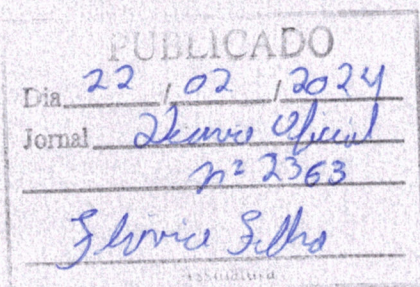 PUBLICADO
Dia 22 / 02 / 2024
Jornal Diário Oficial
nº 2363
Filho
Assinatura